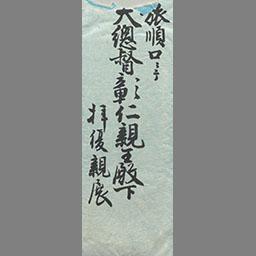 旅順口ニテ
大總督彰仁親王殿下
拝復親展